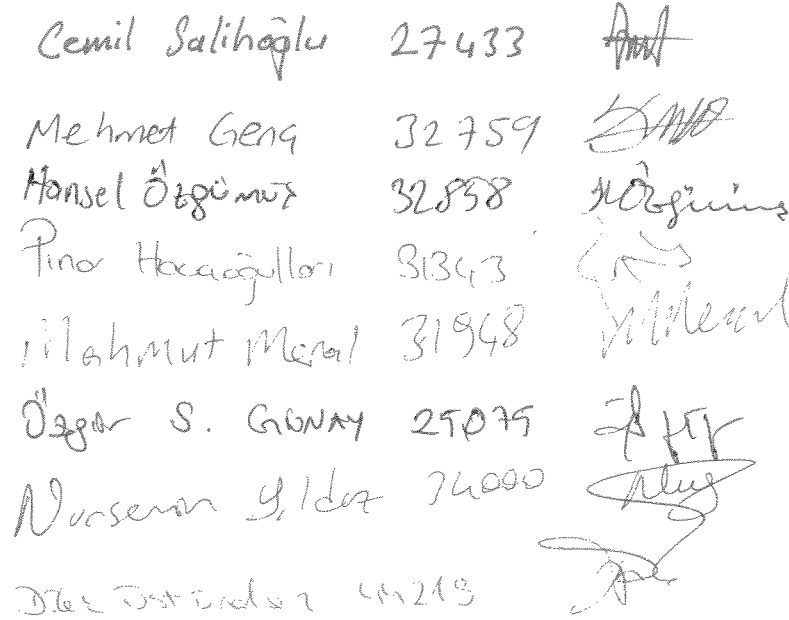 Cemil Salihoğlu 27433
Mehmet Genç 32759
Hansel Özgümüş 32858 HÖzgümüş
Pınar Hacaoğulları 31343
Mahmut Meral 31948 MMeral
Özgür S. GÜNAY 25075
Nurseman Yıldız 34000